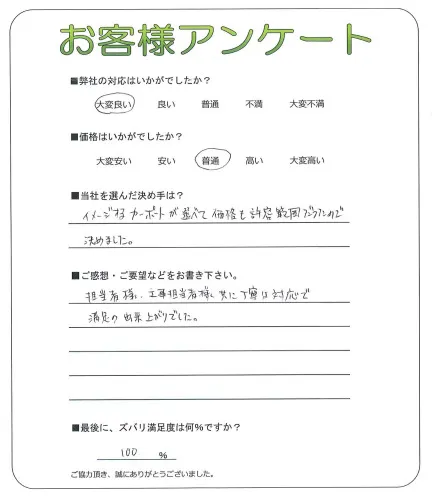 お客様アンケート
■弊社の対応はいかがでしたか？
大変良い 良い 普通 不満 大変不満
■価格はいかがでしたか？
大変安い 安い 普通 高い 大変高い
■当社を選んだ決め手は？
イメージするカーポートが選べて価格も許容範囲だったので
決めました。
■ご感想・ご要望などをお書き下さい。
担当者様、工事担当者様、共に丁寧な対応で
満足の出来上がりでした。
■最後に、ズバリ満足度は何％ですか？
100 %
ご協力頂き、誠にありがとうございました。